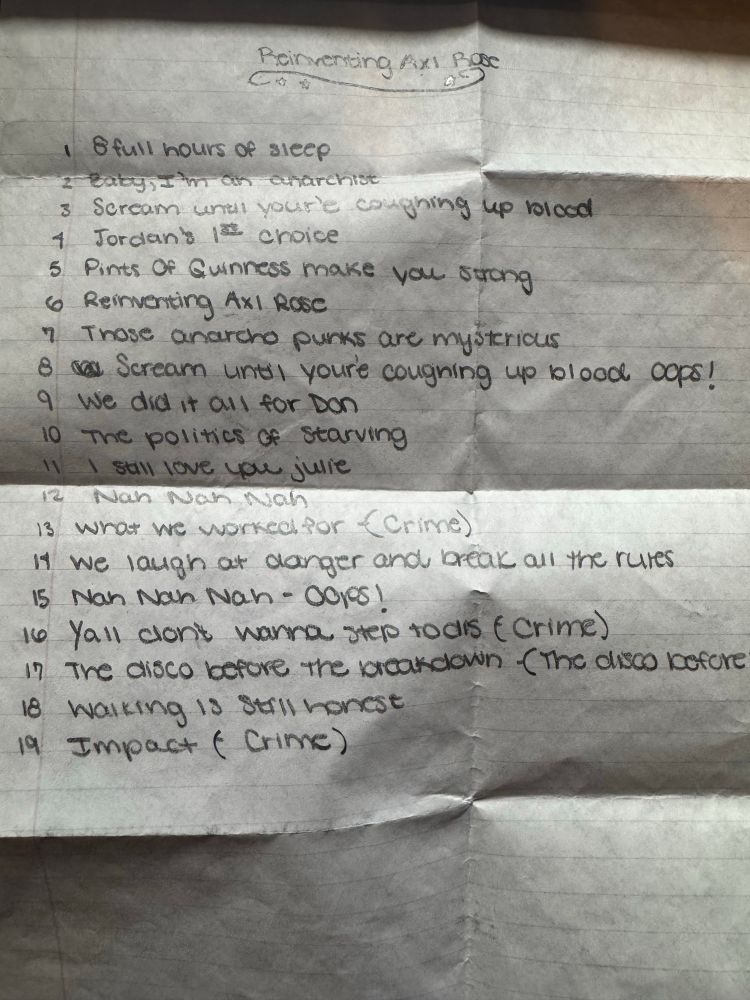 Reinventing Axl Rose
1 8 full hours of sleep
2 Baby, I'm an anarchist
3 Scream until your'e coughing up blood
4 Jordan's 1st choice
5 Pints Of Guinness make you strong
6 Reinventing Axl Rose
7 Those anarcho punks are mysterious
8 Scream until your'e coughing up blood oops!
9 We did it all for Don
10 The politics of starving
11 I still love you julie
12 Nah Nah Nah
13 What we worked for - (Crime)
14 We laugh at danger and break all the rules
15 Nah Nah Nah - Oops!
16 Yall don't wanna step to dis (Crime)
17 The disco before the breakdown - (The disco before
18 Walking is still honest
19 Impact (Crime)